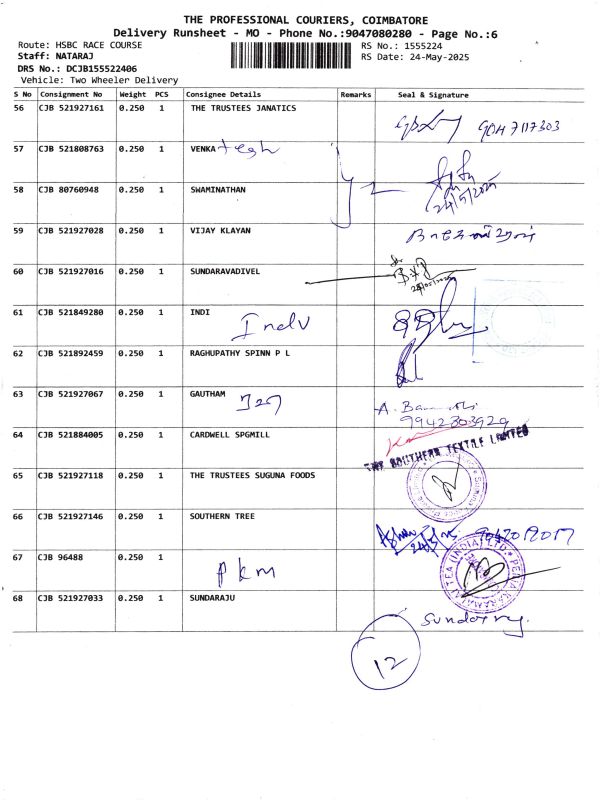 THE PROFESSIONAL COURIERS, COIMBATORE
Delivery Runsheet - MO - Phone No.:9047080280 - Page No.:6
Route: HSBC RACE COURSE RS No.: 1555224
Staff: NATARAJ RS Date: 24-May-2025
DRS No.: DCJB155522406
Vehicle: Two Wheeler Delivery
S No Consignment No Weight PCS Consignee Details Remarks Seal & Signature
56 CJB 521927161 0.250 1 THE TRUSTEES JANATICS
57 CJB 521808763 0.250 1 VENKA tegh
58 CJB 80760948 0.250 1 SWAMINATHAN
24/5/2025
59 CJB 521927028 0.250 1 VIJAY KLAYAN
60 CJB 521927016 0.250 1 SUNDARAVADIVEL
61 CJB 521849280 0.250 1 INDI
62 CJB 521892459 0.250 1 RAGHUPATHY SPINN P L
63 CJB 521927067 0.250 1 GAUTHAM
9942303929
64 CJB 521884005 0.250 1 CARDWELL SPGMILL
THE SOUTHERN TEXTILE LIMITED
65 CJB 521927118 0.250 1 THE TRUSTEES SUGUNA FOODS
66 CJB 521927146 0.250 1 SOUTHERN TREE
67 CJB 96488 0.250 1
PKM
TEA (INDIA) LTD.
68 CJB 521927033 0.250 1 SUNDARAJU
12